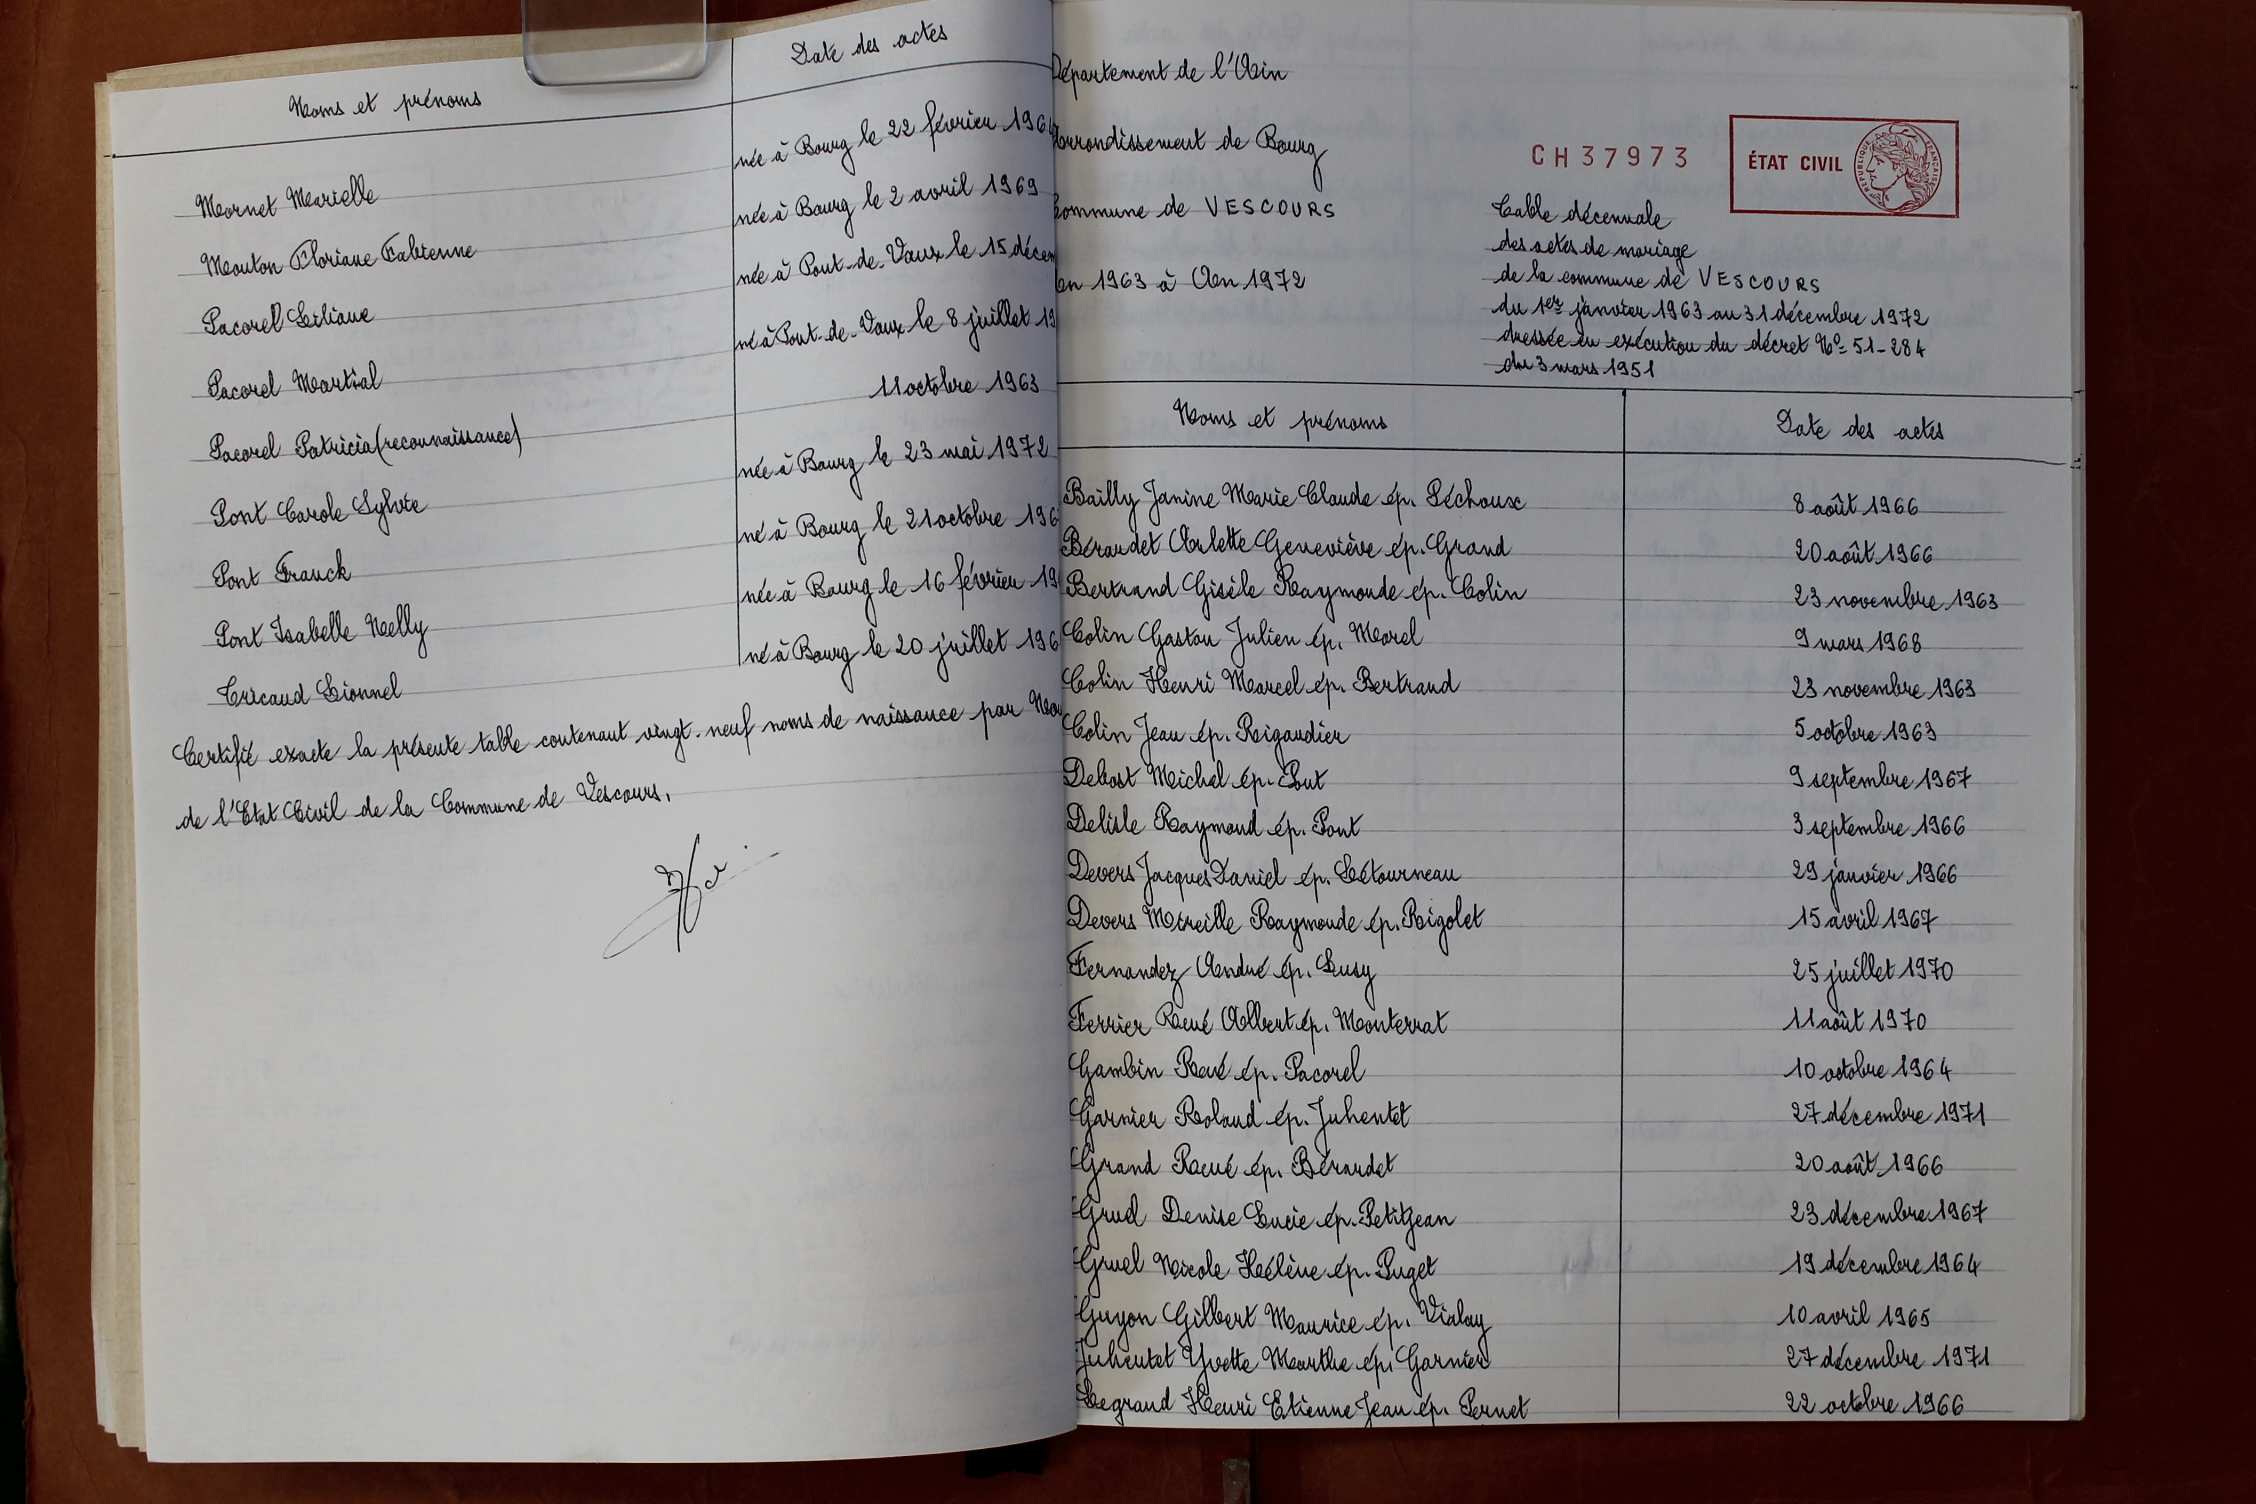 Noms et prénoms
Date des actes
Mornet Marielle
née à Bourg le 22 février 196
Mouton Floriane Fabienne
née à Bourg le 2 avril 1969
Pacorel Liliane
née à Pont-de-Vaux le 15 décem
Pacorel Martial
né à Pont-de-Vaux le 8 juillet 19
Pacorel Patricia (reconnaissance)
11 octobre 1963
Pont Carole Sylvie
née à Bourg le 23 mai 1972
Pont Franck
né à Bourg le 21 octobre 196
Pont Isabelle Nelly
née à Bourg le 16 février 19
Tricaud Lionnel
né à Bourg le 20 juillet 196
Certifié exacte la présente table contenant vingt-neuf noms de naissance par
de l'Etat Civil de la Commune de Vescours.
Département de l'Ain
Arrondissement de Bourg
Commune de VESCOURS
An 1963 à An 1972
CH37973
ÉTAT CIVIL
RÉPUBLIQUE FRANÇAISE
Table décennale
des actes de mariage
de la commune de VESCOURS
du 1er janvier 1963 au 31 décembre 1972
dressée en exécution du décret No 51-284
du 3 mars 1951
Noms et prénoms
Date des actes
Bailly Janine Marie Claude ép. Péchoux
8 août 1966
Bérardet Arlette Geneviève ép. Grand
20 août 1966
Bertrand Gisèle Raymonde ép. Colin
23 novembre 1963
Colin Gaston Julien ép. Morel
9 mars 1968
Colin Henri Marcel ép. Bertrand
23 novembre 1963
Colin Jean ép. Rigaudier
5 octobre 1963
Debost Michel ép. Pont
9 septembre 1967
Delisle Raymond ép. Pont
3 septembre 1966
Devers Jacques Daniel ép. Létourneau
29 janvier 1966
Devers Mireille Raymonde ép. Rigolet
15 avril 1967
Fernandez André ép. Lusy
25 juillet 1970
Ferrier René Albert ép. Monterrat
11 août 1970
Gambin René ép. Pacorel
10 octobre 1964
Garnier Roland ép. Juhentet
27 décembre 1971
Grand René ép. Bérardet
20 août 1966
Gruel Denise Lucie ép. Petitjean
23 décembre 1967
Gruel Nicole Hélène ép. Puget
19 décembre 1964
Guyon Gilbert Maurice ép. Vialay
10 avril 1965
Juhentet Yvette Marthe ép. Garnier
27 décembre 1971
Legrand Henri Etienne Jean ép. Pernet
22 octobre 1966